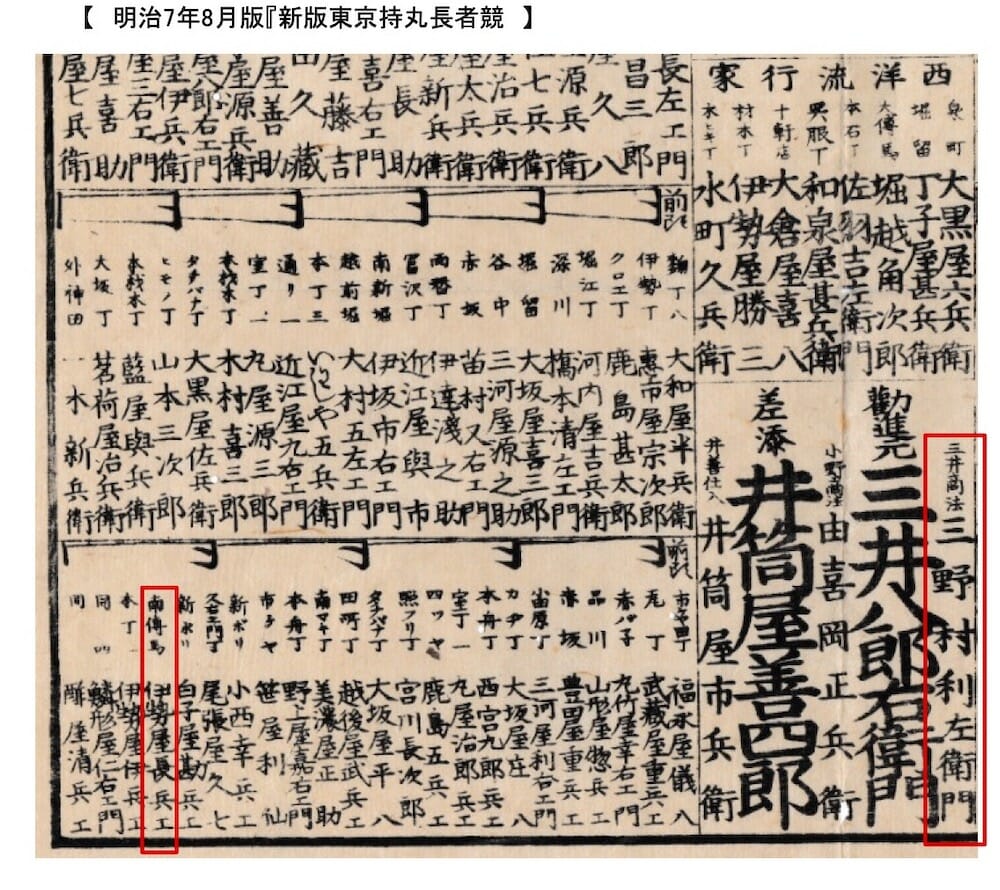 【 明治7年8月版『新版東京持丸長者競 】
西洋流行家
泉町 大黒屋六兵衛
堀留 丁子屋甚兵衛
大傳馬 堀越角次郎
本石丁 佐羽吉左衛門
呉服丁 和泉屋甚兵衛
十軒店 大倉屋喜八
材木丁 伊勢屋勝三
水町久兵衛
三井商法 三野村利左衛門
勸進元 三井八郎右衛門
由喜岡正兵衛
差添 井筒屋善四郎
井善仕入 井筒屋市兵衛
長左エ門
昌三郎
久八
源兵衛
七兵衛
屋治兵衛
屋太兵衛
屋新兵衛
屋長助
喜右エ門
屋藤吉
久藏
屋善助
屋源兵衛
屋伊兵衛
屋三右エ門
屋喜助
屋七兵衛
前頭
大和屋半兵衛
伊勢丁 惠比屋宗次郎
クロエ丁 鹿島甚太郎
堀江丁 河内屋吉兵衛
深川 橋本清左エ門
堀留 大坂屋喜三郎
谷中 三河屋源之助
赤坂 苗村又右エ門
両替丁 伊達淺之助
冨沢丁 近江屋與市
南新堀 伊坂市右エ門
越前堀 大村五左エ門
本丁三 いせや五兵衛
通り一 近江屋九右エ門
室丁一 丸屋源三郎
本材木丁 木村喜三郎
タチバナ丁 大黒屋佐兵衛
ヒモノ丁 山本三次郎
本材木丁 藍屋與兵衛
大坂丁 茗荷屋治兵衛
外神田 一木新兵衛
前頭
福永屋儀八
元丁 武藏屋重兵エ
九竹屋幸右エ門
品川 山形屋惣兵エ
赤坂 豊田屋重兵エ
小田原丁 三河屋利右エ門
カヂ丁 大坂屋庄八
本舟丁 西宮九郎兵エ
室丁一 九屋治郎兵エ
四ツヤ 鹿島五兵エ
照フリ丁 宮川長次郎
タチバナ丁 大坂屋平八
田所丁 越後屋武兵エ
南マキ丁 美濃屋正助
本舟丁 野上屋嘉右エ門
市ヶヤ 笹屋利仙
新ボリ 小西幸兵エ
尾張屋久七
新ボリ 白子屋勘
南傳馬 伊勢屋長兵エ
本丁一 伊勢屋伊兵エ
同四 鱗形屋仁右エ門
同 屋清兵エ